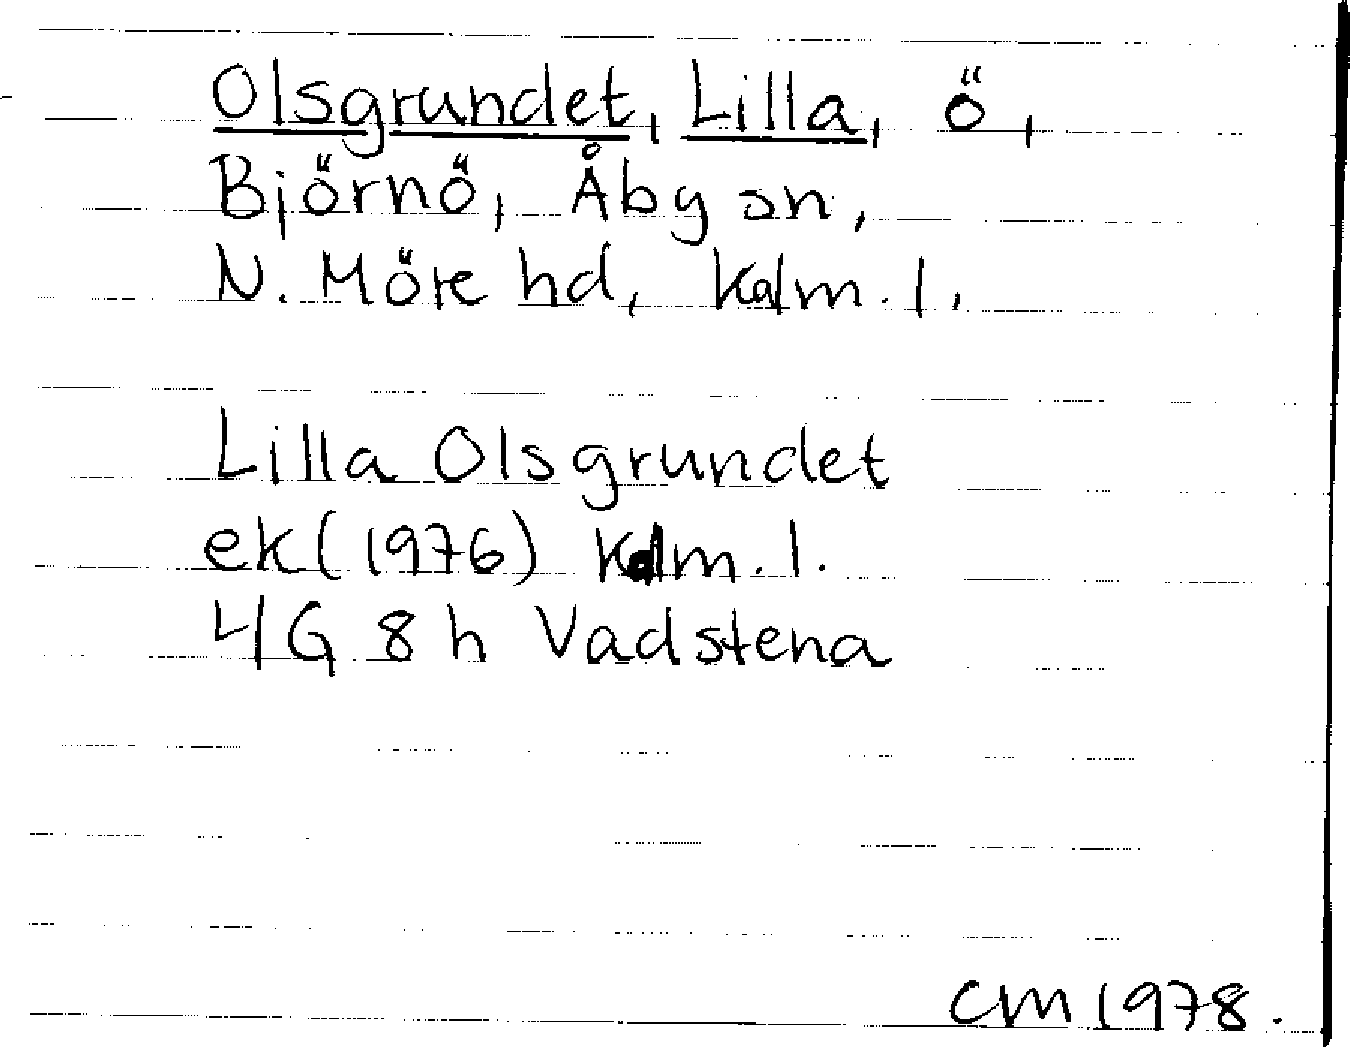 Olsgrundet, Lilla, ö,
Björnö, Åby sn,
N. Möre hd, Kalm. l.
Lilla Olsgrundet
ek (1976) Kalm. l.
4G 8h Vadstena
CM 1978.